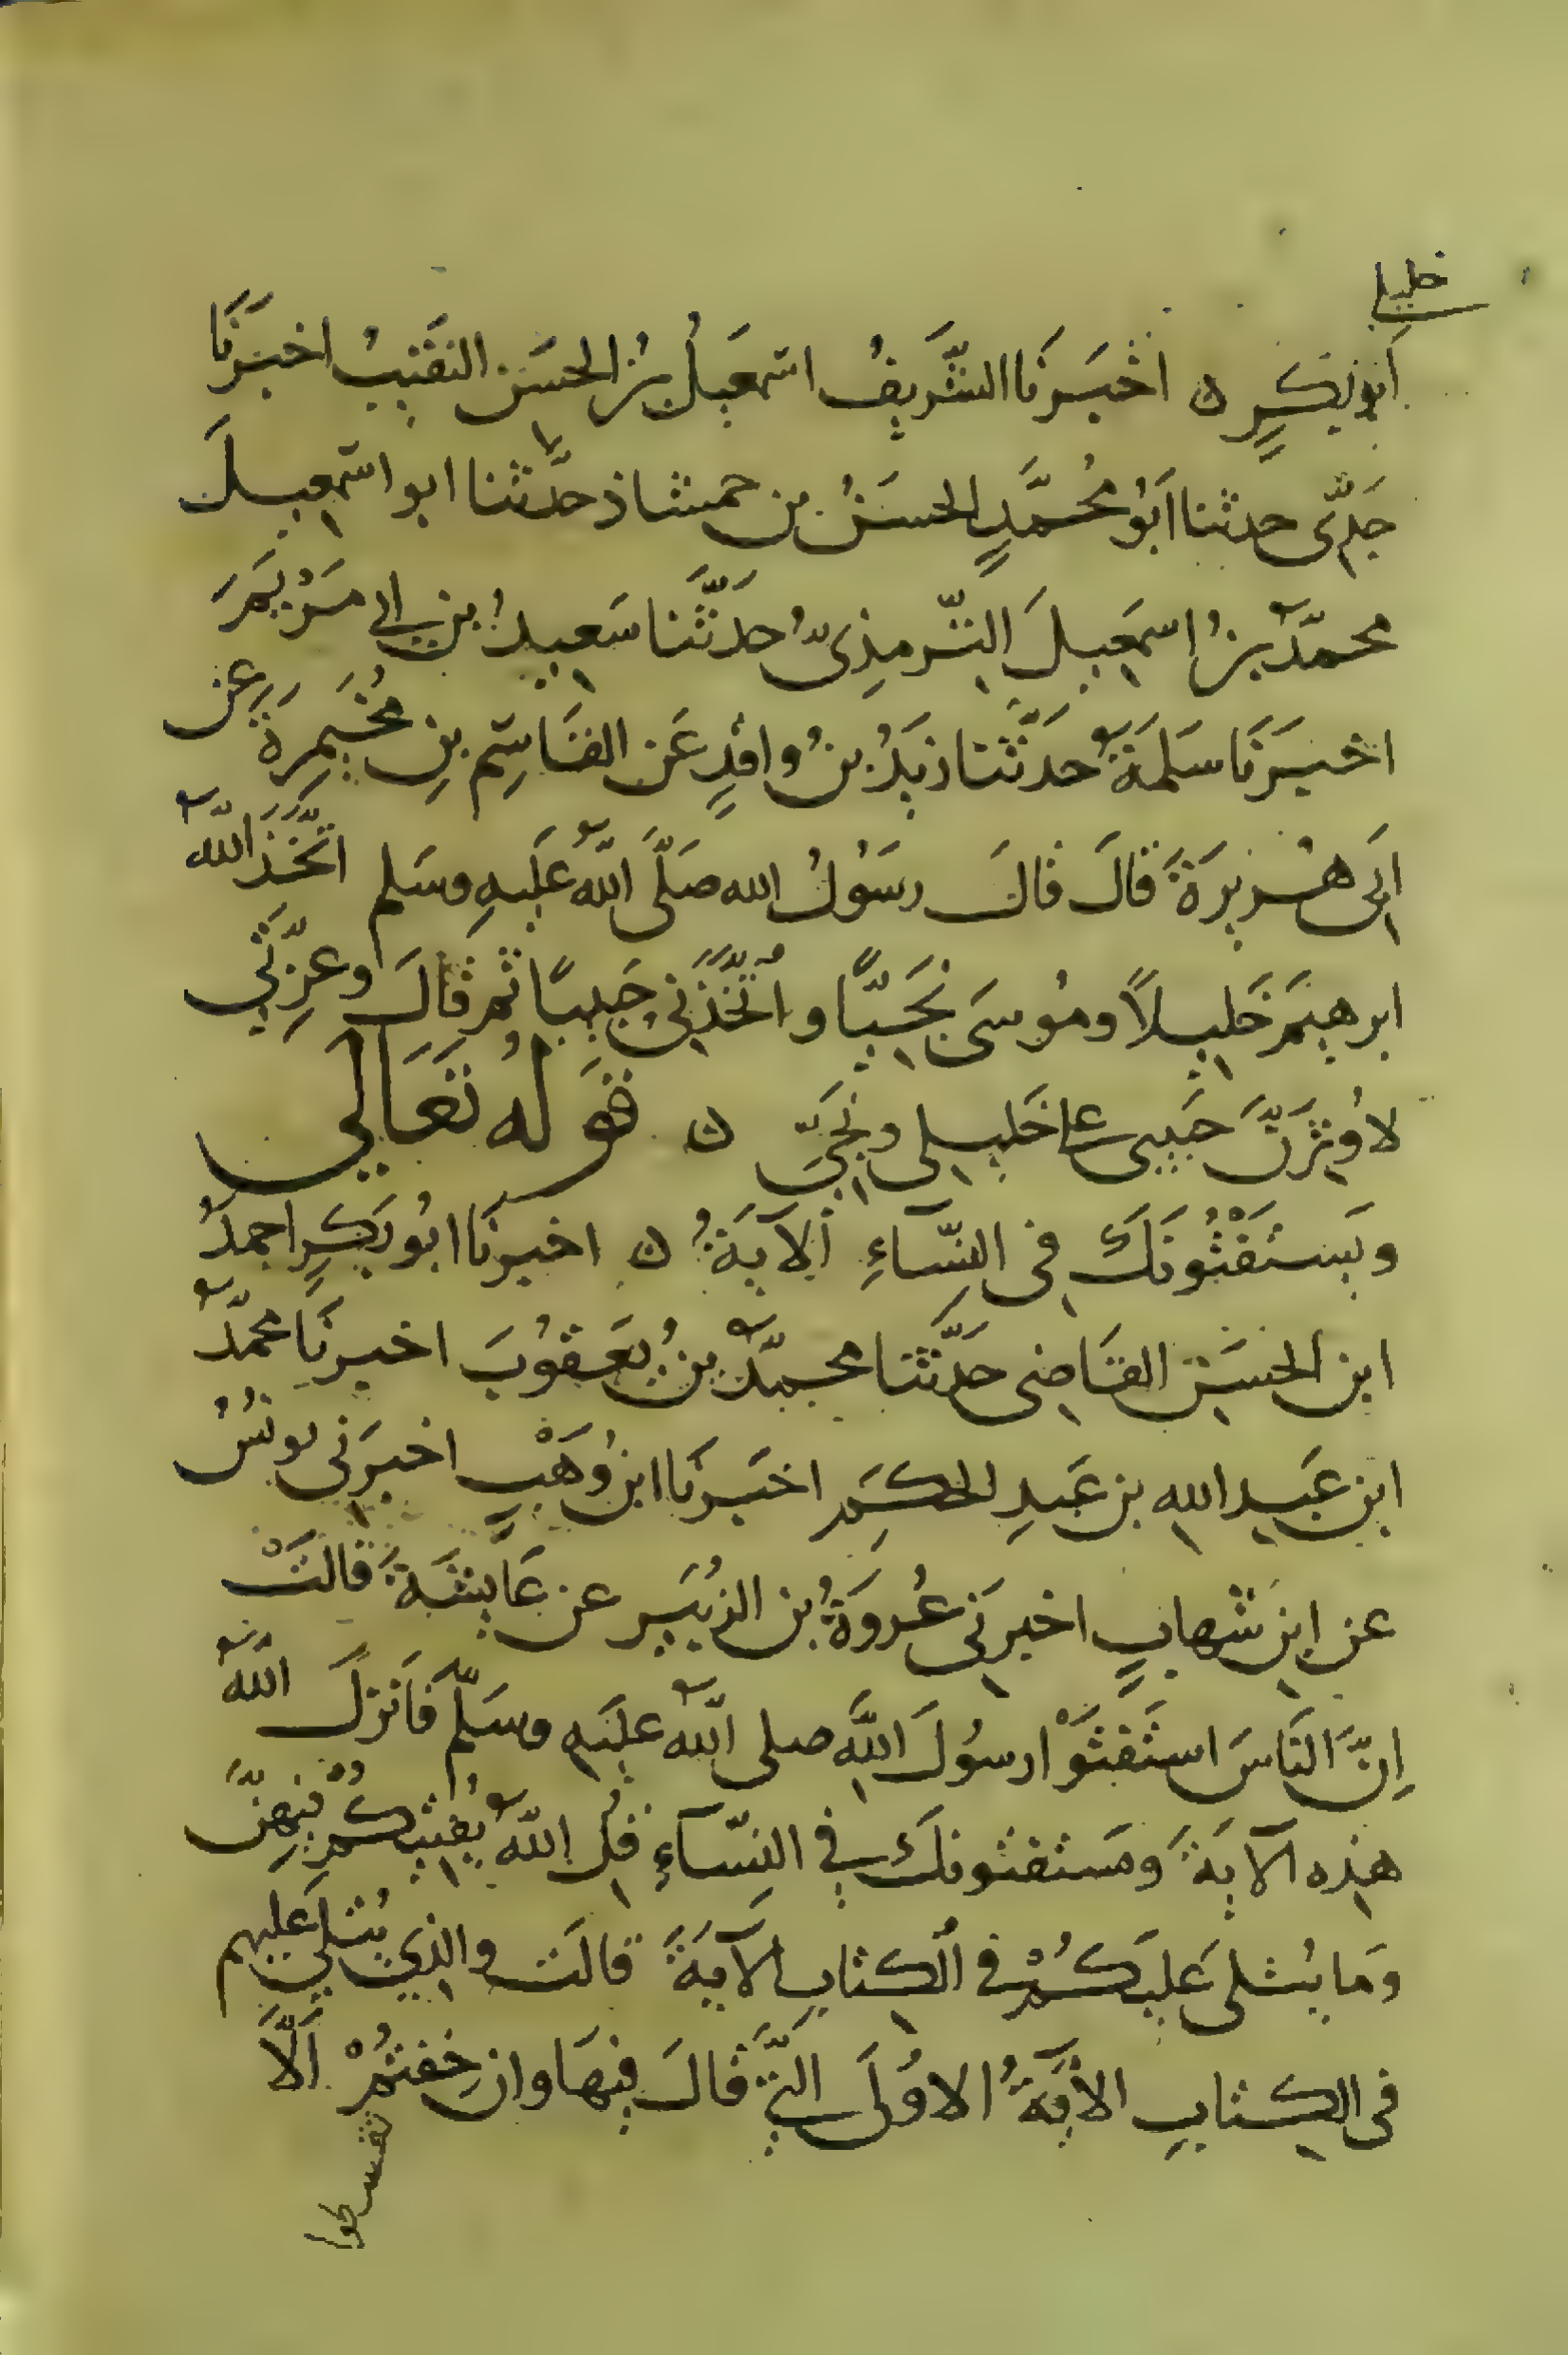 خليلي
أَبُو بَكْرٍ ه اخْبَرَنَا الشَّرِيفُ اسْمَعِيلُ بْنُ الحَسَنِ النَقِيبُ اخبَرَنَا
جَدِّى حدثنا اَبُو مُحَمَّدٍ الحسَنُ بن حمشاذ حدَّثنا ابو اسْمعيلَ
محمدُ بنُ اسمَعِيلَ التِّرمِذِىُّ حَدَّثَنا سَعِيدُ بن ابى مَرْيَمَ
اخبَرَنَا سَلمَةُ حَدَثَنا زَيدُ بنُ وَاقدٍ عَن القَاسِمِ بنِ مُخَيمِرَةَ عن
اَبِى هُرَيرَةَ قالَ قالَ رسَوُلُ الله صَلَّى اللهُ عَلَيهِ وسَلم اتَّخَذَ اللهُ
ابرهيمَ خَلِيلاً ومُوسَى نَجِيّاً واتَّخَذَنِى حَبِيبًا ثم قالَ وعِزَّتي
لاُوثِرَنَّ حَبِيبى على خَليلى ونَجِىِّ ه قَوله تَعَالى
وَيَستَفْتُونَكَ فى النِّسَاءِ الآيَةُ ه اخبرنَا ابُو بَكرٍ احمدُ
ابن الحَسَنِ القَاضِى حَدَّثَنا محمدُ بنُ يَعقُوبَ اخبرنَا محمدُ
ابن عَبدِ اللهِ بن عَبدِ الحكَمِ اخبَرنَا ابنُ وَهْبٍ اخبَرَنى يونُسُ
عن ابنِ شهابٍ اخبرَنى عُروَةُ بن الزبَير عن عَايشَةَ قالتْ
اِنَّ النَاسَ استَفتَوْا رسوُلَ اللهِ صلى اللهُ عليَهِ وسَلَّم فَانزلَ اللهُ
هذِه الآيةَ وَيَستفتونكَ في النِسَّاءِ قُل اللهُ يُفتِيكُمْ فيهِنَّ
وَمَا يُتلى عَلَيكُمْ فى الكِتابِ الآيَةَ قالَت والذِي يُتلي عَليهم
فى الكِتابِ الآيَةُ الاوُلَى التِي قَالَ فِيهَا وان خِفتُمْ اَلَّا
تقسطوا